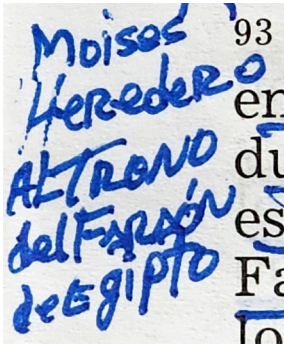 Moises
Heredero
AL TRONO
del FARAÓN
de Egipto
93
en
du
es
Fa
lo